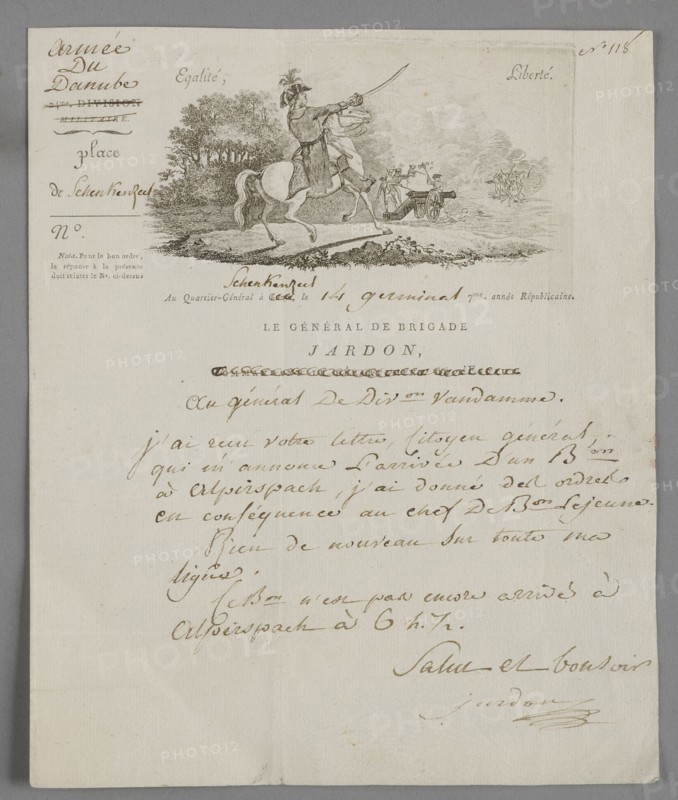 Armée
Du
Danube
24me. DIVISION
MILITAIRE.
place
de Schenkenzell
N°.
Nota. Pour le bon ordre,
la réponse à la présente
doit relater le N°. ci-dessus
N° 118
Egalité,
Liberté.
Schenkenzell
Au Quartier-Général à le 14 germinal 7me. année Républicaine.
LE GÉNÉRAL DE BRIGADE
JARDON,
Au général De Divon Vandamme.
j'ai recu votre lettre, Citoyen général,
qui m'annonce L'arrivée D'un Bon
à Alpirspach, j'ai donné des ordres
en conséquence au chef De Bon Lejeune.
Rien de nouveau Sur toute ma
ligne.
Ce Bon n'est pas encore arrivé à
Alpirspach à 6 h. 1/2.
Salut et bonsoir
jardon
PHOTO12